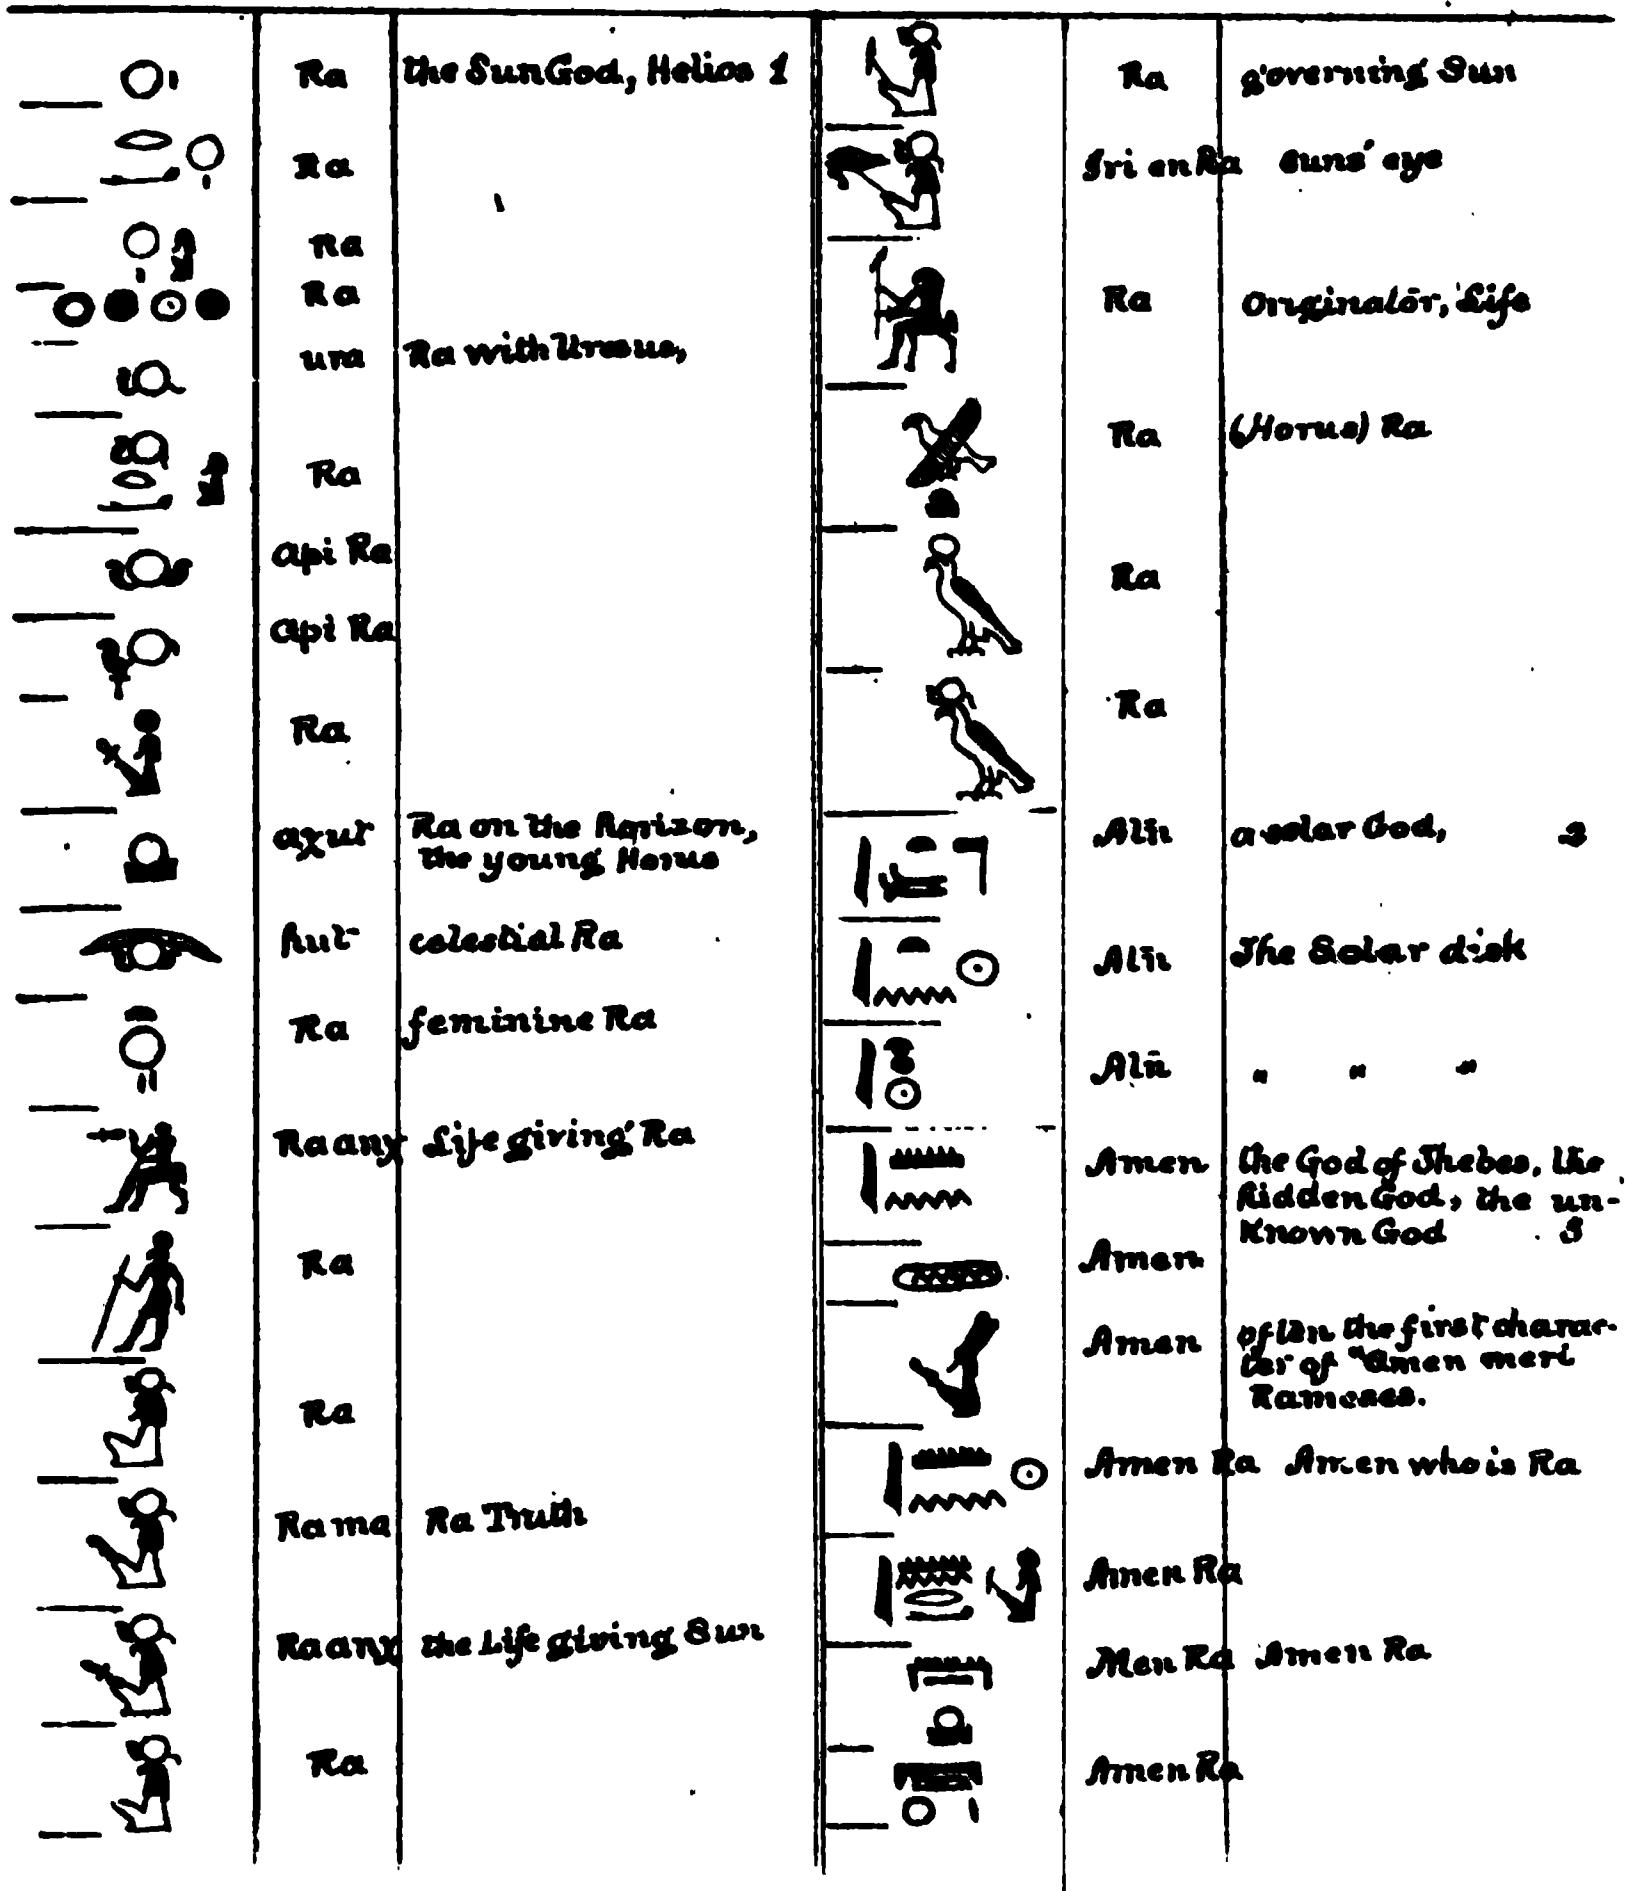 Ra the Sun God, Helios 1
Ra
Ra
Ra
ura Ra with Uræus,
Ra
api Ra
api Ra
Ra
aχut Ra on the horizon,
the young Horus
hut celestial Ra
Ra feminine Ra
Ra anχ Life giving Ra
Ra
Ra
Ra ma Ra Truth
Ra anχ the Life giving Sun
Ra
Ra governing Sun
Iri en Ra suns' eye
Ra Originator, Life
Ra (Horus) Ra
Ra
Ra
Atn a solar God,
Atn The Solar disk
Atn " " "
Amen the God of Thebes, the
hidden God, the un-
known God
Amen
Amen often the first charac-
ter of "Amen meri
Rameses.
Amen Ra Amen who is Ra
Amen Ra
Men Ra Amen Ra
Amen Ra